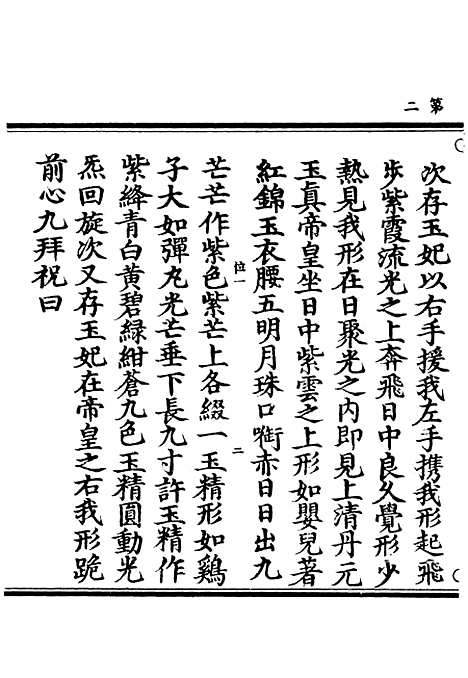 第二
次存玉妃以右手援我左手携我形起飛
步紫霞流光之上奔飛日中良久覺形少
熱見我形在日聚光之内即見上清丹元
玉真帝皇坐日中紫雲之上形如嬰兒著
紅錦玉衣腰五明月珠口啣赤日日出九
位一
二
芒芒作紫色紫芒上各綴一玉精形如鷄
子大如彈丸光芒垂下長九寸許玉精作
紫絳青白黄碧緑紺蒼九色玉精圓動光
炁回旋次又存玉妃在帝皇之右我形跪
前心九拜祝曰